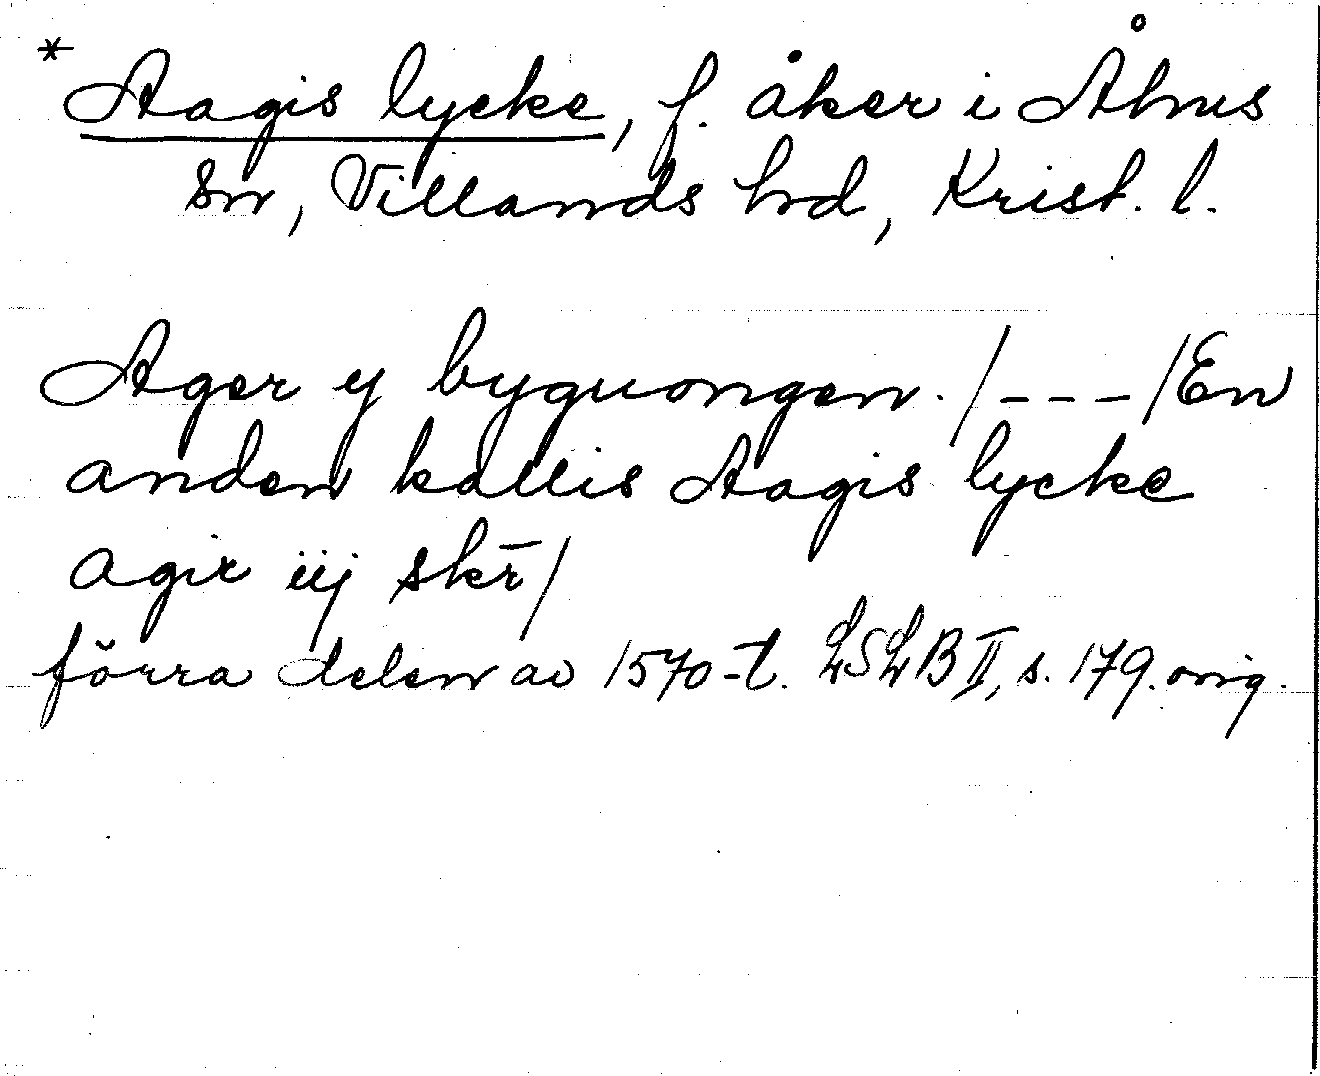 *Aagis lycke, f. åker i Åhus
sn, Villands hd, Krist. l.
Ager y byguongen. /---/ En
anden kallis Aagis lycke
agir iij skr̄/
förra delen av 1570-t. LSLB II, s. 179. orig.